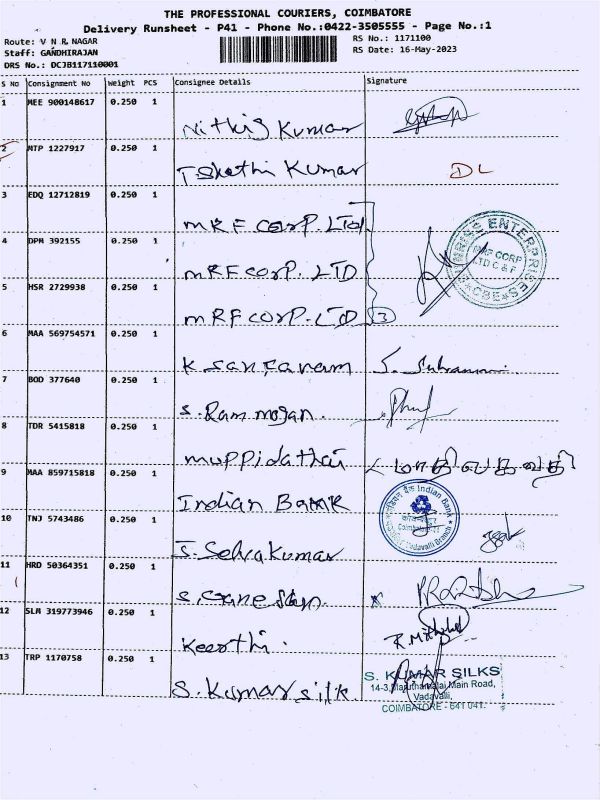 THE PROFESSIONAL COURIERS, COIMBATORE
Delivery Runsheet - P41 - Phone No.:0422-3505555 - Page No.:1
Route: V N R NAGAR
RS No.: 1171100
Staff: GANDHIRAJAN
RS Date: 16-May-2023
DRS No.: DCJB117110001
S No Consignment No Weight PCS Consignee Details Signature
1 MEE 900148617 0.250 1
Nithis Kumar
2 MTP 1227917 0.250 1
T. Sakthi Kumar DL
3 EDQ 12712819 0.250 1
MRF CORP. LTD
4 DPM 392155 0.250 1
MRF CORP. LTD
5 HSR 2729938 0.250 1
MRF CORP. LTD 3
ENTERPRISES
MRF CORP
LTD C & F
CBE
6 MAA 569754571 0.250 1
K Santanam
7 BOD 377640 0.250 1
S. Ram mogan.
8 TDR 5415818 0.250 1
muppidathai
9 MAA 859715818 0.250 1
Indian Bank
Indian Bank
Vadavalli Branch
10 TNJ 5743486 0.250 1
S. Selvakumar
11 HRD 50364351 0.250 1
S. Ganesan.
12 SLM 319773946 0.250 1
Keerthi.
13 TRP 1170758 0.250 1
S. Kumar silk
S. KUMAR SILKS
14-3, Maruthamalai Main Road,
Vadavalli,
COIMBATORE - 641 041.